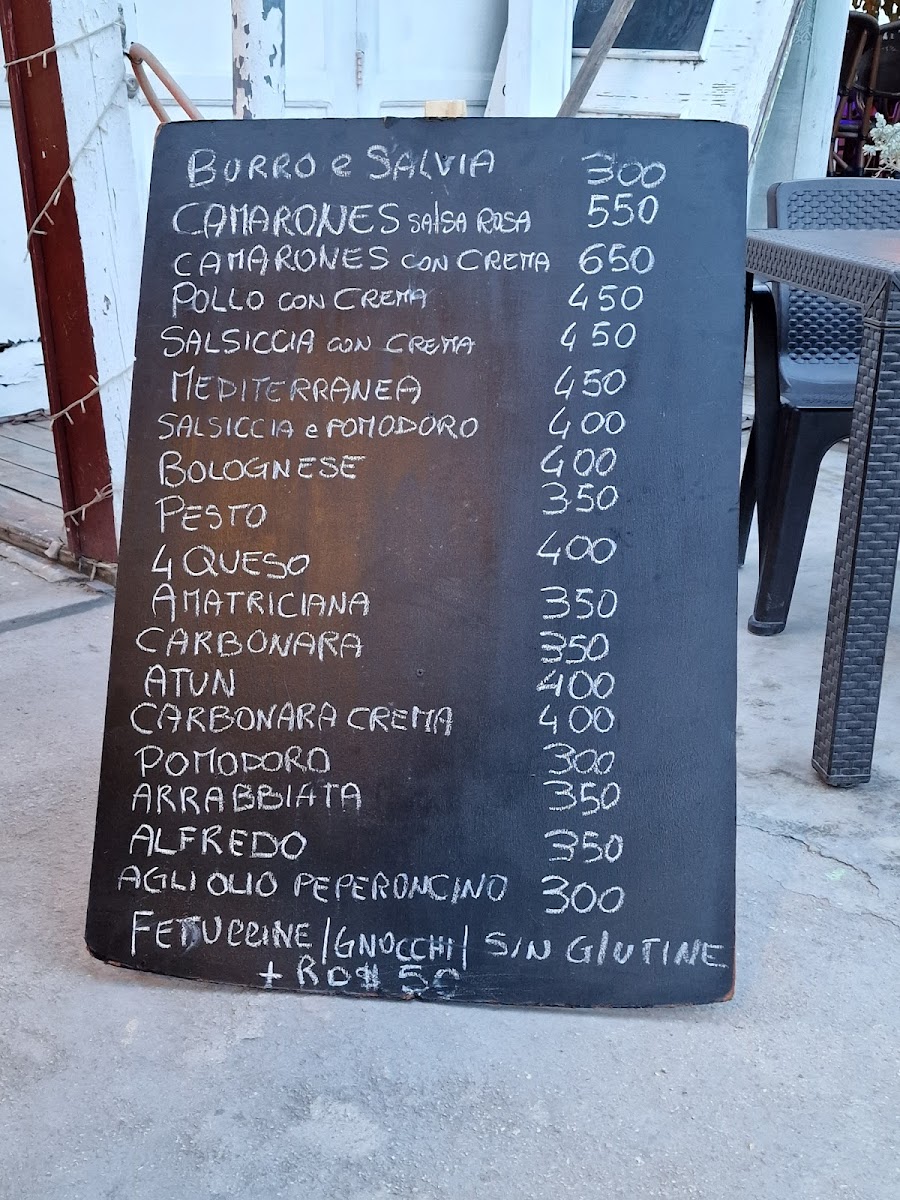 BURRO e SALVIA 300
CAMARONES SALSA ROSA 550
CAMARONES CON CREMA 650
POLLO CON CREMA 450
SALSICCIA CON CREMA 450
MEDITERRANEA 450
SALSICCIA e POMODORO 400
BOLOGNESE 400
PESTO 350
4 QUESO 400
AMATRICIANA 350
CARBONARA 350
ATUN 400
CARBONARA CREMA 400
POMODORO 300
ARRABBIATA 350
ALFREDO 350
AGLI OLIO PEPERONCINO 300
FETUCCINE / GNOCCHI / SIN GLUTINE
+ RD$ 50